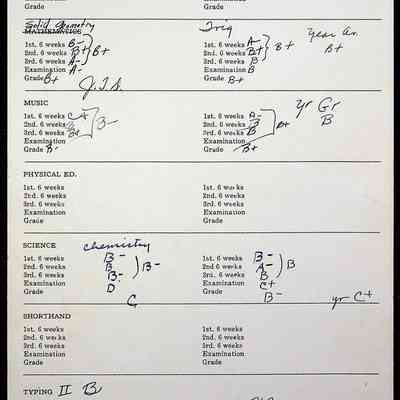 Grade Grade
Solid Geometry Trig
MATHEMATICS Year Av.
1st. 6 weeks B- 1st. 6 weeks A- B+
2nd. 6 weeks B+ B+ 2nd. 6 weeks B+ B+
3rd. 6 weeks A- 3rd. 6 weeks B
Examination A- Examination B
Grade B+ Grade B+
J.T.S.
MUSIC yr Gr
1st. 6 weeks C+ 1st. 6 weeks A- B
2nd. 6 weeks B- 2nd. 6 weeks B B+
3rd. 6 weeks B+ 3rd. 6 weeks B
Examination Examination
Grade B- Grade B+
PHYSICAL ED.
1st. 6 weeks 1st. 6 weeks
2nd. 6 weeks 2nd. 6 weeks
3rd. 6 weeks 3rd. 6 weeks
Examination Examination
Grade Grade
SCIENCE chemistry
1st. 6 weeks B- 1st. 6 weeks B-
2nd. 6 weeks B B- 2nd 6 weeks A- B
3rd. 6 weeks B- 3rd. 6 weeks B
Examination D Examination C+
Grade C Grade B- yr C+
SHORTHAND
1st. 6 weeks 1st. 6 weeks
2nd. 6 weeks 2nd. 6 weeks
3rd. 6 weeks 3rd. 6 weeks
Examination Examination
Grade Grade
TYPING II B